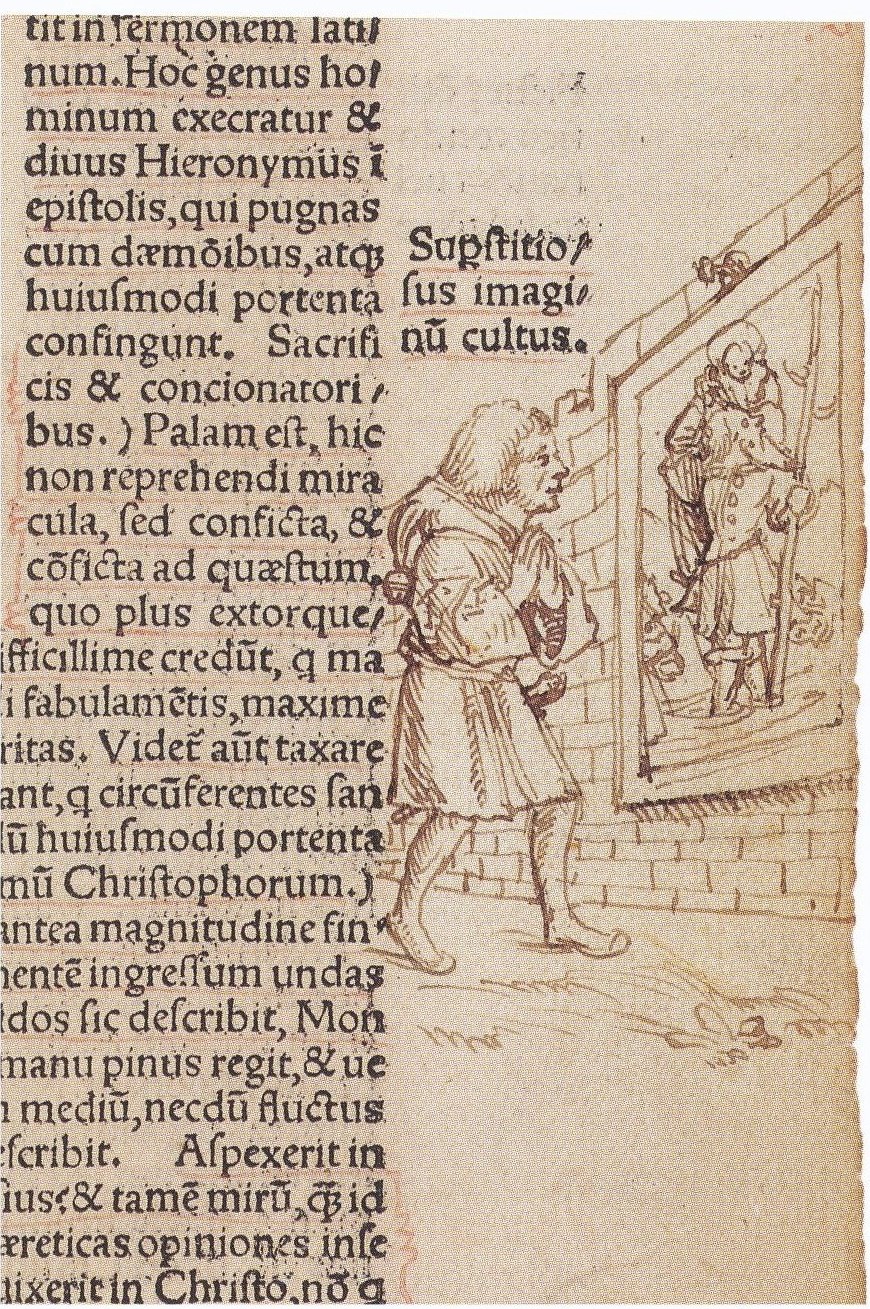 tit in ſermonem lati⸗
num. Hoc genus ho⸗
minum execratur &
diuus Hieronymus ī
epiſtolis, qui pugnas
cum dæmõibus, atqꝫ
huiuſmodi portenta
confingunt. Sacrifi
cis & concionatori⸗
bus.) Palam eſt, hic
non reprehendi mira
cula, ſed conficta, &
cõficta ad quæſtum,
quo plus extorque⸗
ifficillime credūt, q̃ ma
i fabulamētis, maxime
ritas. Videt̃ aūt taxare
ant, q circūferentes ſan
lū huiuſmodi portenta
mū Chriſtophorum.)
antea magnitudine fin⸗
nentē ingreſſum undas
dos ſic deſcribit, Mon
manu pinus regit, & ue
mediū, necdū fluctus
eſcribit. Aſpexerit in
ius? & tamē mirū, qꝫ id
æreticas opiniones inſe
uixerit in Chriſto, nõ q
Suꝑſtitio⸗
ſus imagi⸗
nū cultus.